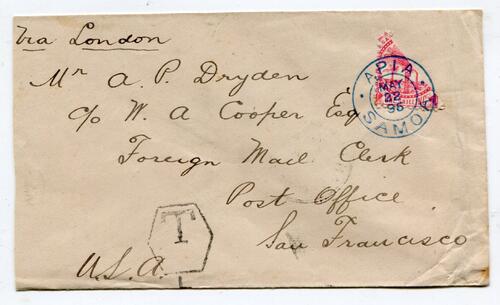 Via London
Mr A. P. Dryden
c/o W. A Cooper Esq
Foreign Mail Clerk
Post Office
San Francisco
U.S.A.
APIA
MAY
22
96
SAMOA
T